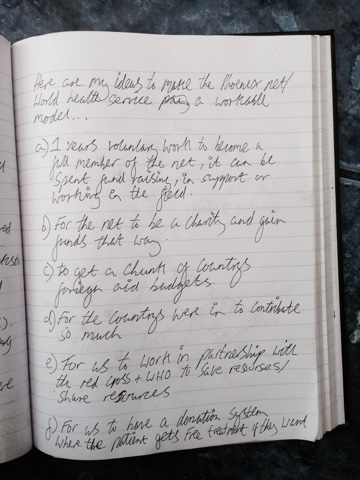 Here are my ideas to make the Phoenix net/
World health service a workable
model...
a) 1 years voluntary work to become a
full member of the net, it can be
spent fund raising, in support or
working in the field.
b) For the net to be a charity and gain
funds that way.
c) to get a chunk of countrys
foriegn aid budgets.
d) For the countrys were in to contribute
so much
e) For us to work in partnership with
the red cross + WHO to save resurses/
share resources
f) For us to have a donation system
where the patient gets free treatment if they